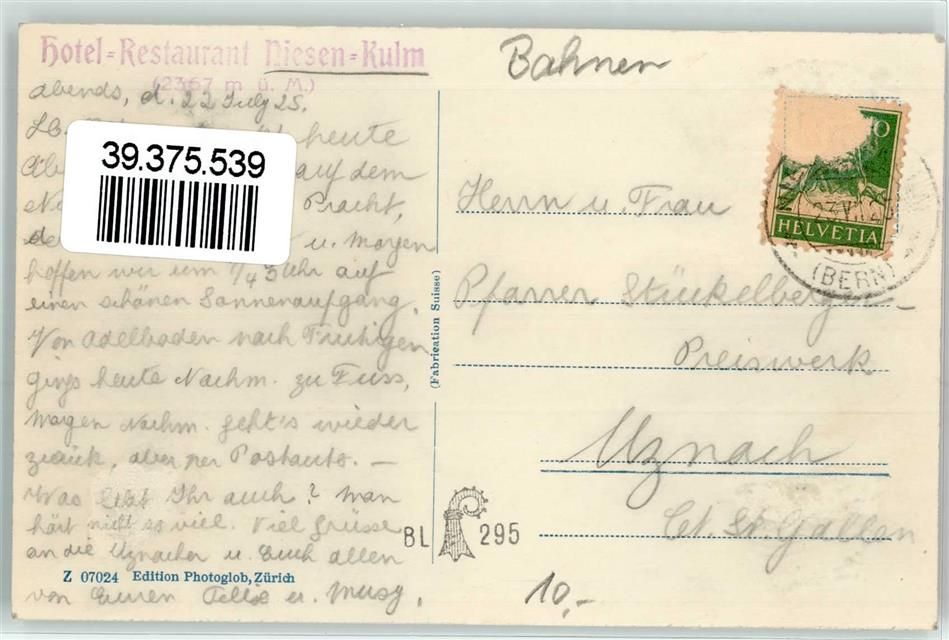 Hotel-Restaurant Niesen-Kulm
(2367 m ü. M.)
Bahnen
abends, d. 22 July 25.
heute
auf dem
Pracht,
u. Morgen
hoffen wir um 1/4 5 Uhr auf
einen schönen Sonnenaufgang.
Von Adelboden nach Frutigen
gings heute Nachm. zu Fuss,
morgen Nachm. geht's wieder
zurück, aber per Postauto. –
Was lebt Ihr auch? man
hört nicht so viel. Viel Grüsse
an die Uznacher u. Euch allen
von Euren Felix u. Musy.
39.375.539
(Fabrication Suisse)
Herrn u. Frau
Pfarrer Stückelberger-
Preiswerk
Uznach
Ct. St. Gallen
10
HELVETIA
(BERN)
BL 295
Z 07024 Edition Photoglob, Zürich
10,-